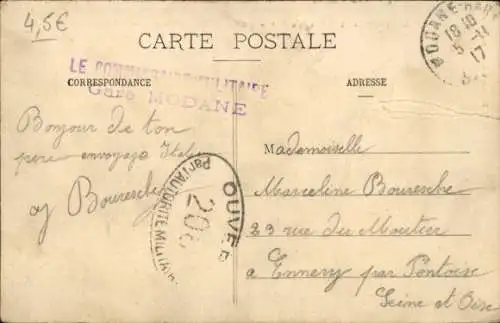 4,5€
CARTE POSTALE
MODANE-GARE
18 10
5-11
17
LE COMMISSAIRE MILITAIRE
Gare MODANE
CORRESPONDANCE
ADRESSE
Bonjour de ton
père envoyage Italie
Bouresche
OUVERT
Par l'AUTORITÉ MILITAIRE
Mademoiselle
Marceline Bouresche
23 rue du Moutier
a Ennery par Pontoise
Seine et Oise